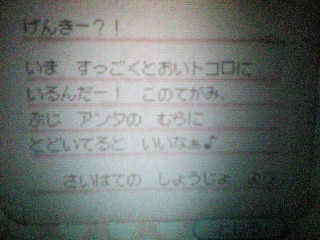 げんきー？！
いま　すっごくとおいトコロに
いるんだー！　このてがみ、
ぶじ　アンタの　むらに
とどいてると　いいなぁ♪
さいはての　しょうじょ　より
とじる